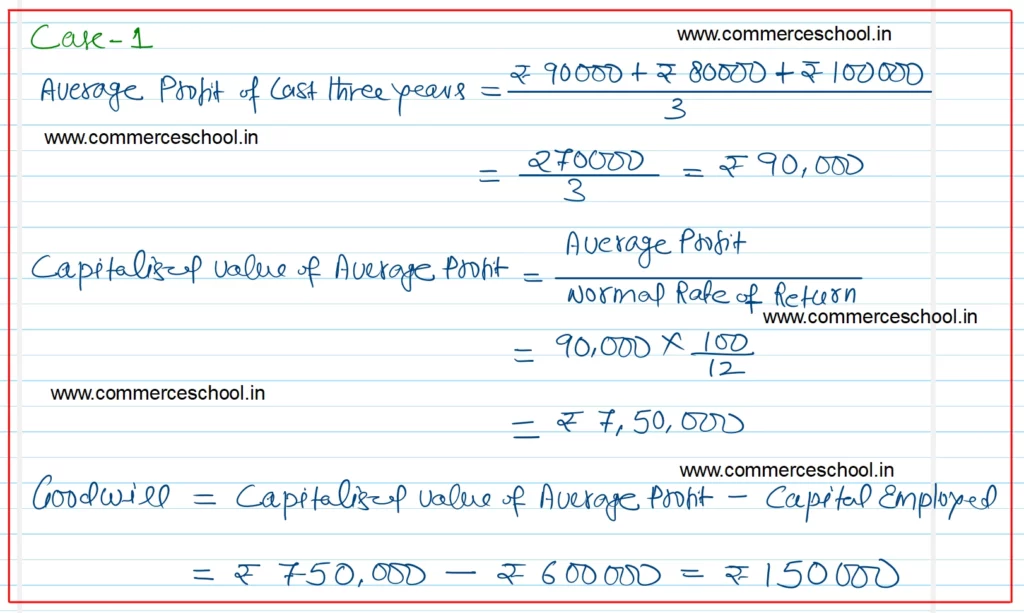 Case-1
www.commerceschool.in
Average Profit of Last three years = ₹ 90000 + ₹ 80000 + ₹ 100000 / 3
www.commerceschool.in
= 270000 / 3 = ₹ 90,000
Capitalised value of Average Profit = Average Profit / Normal Rate of Return
www.commerceschool.in
= 90,000 × 100 / 12
www.commerceschool.in
= ₹ 7,50,000
www.commerceschool.in
Goodwill = Capitalised value of Average Profit - Capital Employed
= ₹ 750,000 - ₹ 600000 = ₹ 150000